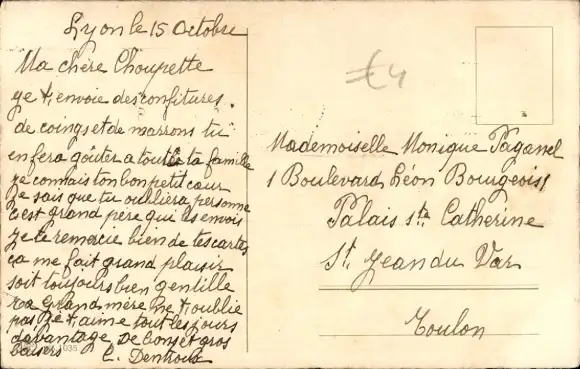 Lyon le 15 Octobre
Ma chère Choupette
je t, envoie des confitures.
de coings et de marrons tu
en fera goûter a toute ta famille
je connais ton bon petit cœur
je sais que tu oubliera personne
c'est grand père qui les envois
je te remercie bien de tes cartes
ça me fait grand plaisir
soit toujours bien gentille
ta Grand mère ne t, oublie
pas je t, aime tout les jours
davantage de bons et gros
baisers
1035
£4
Mademoiselle Monique Paganel
1 Boulevard Léon Bourgeois
Palais Ste Catherine
St. Jean du Var
Toulon